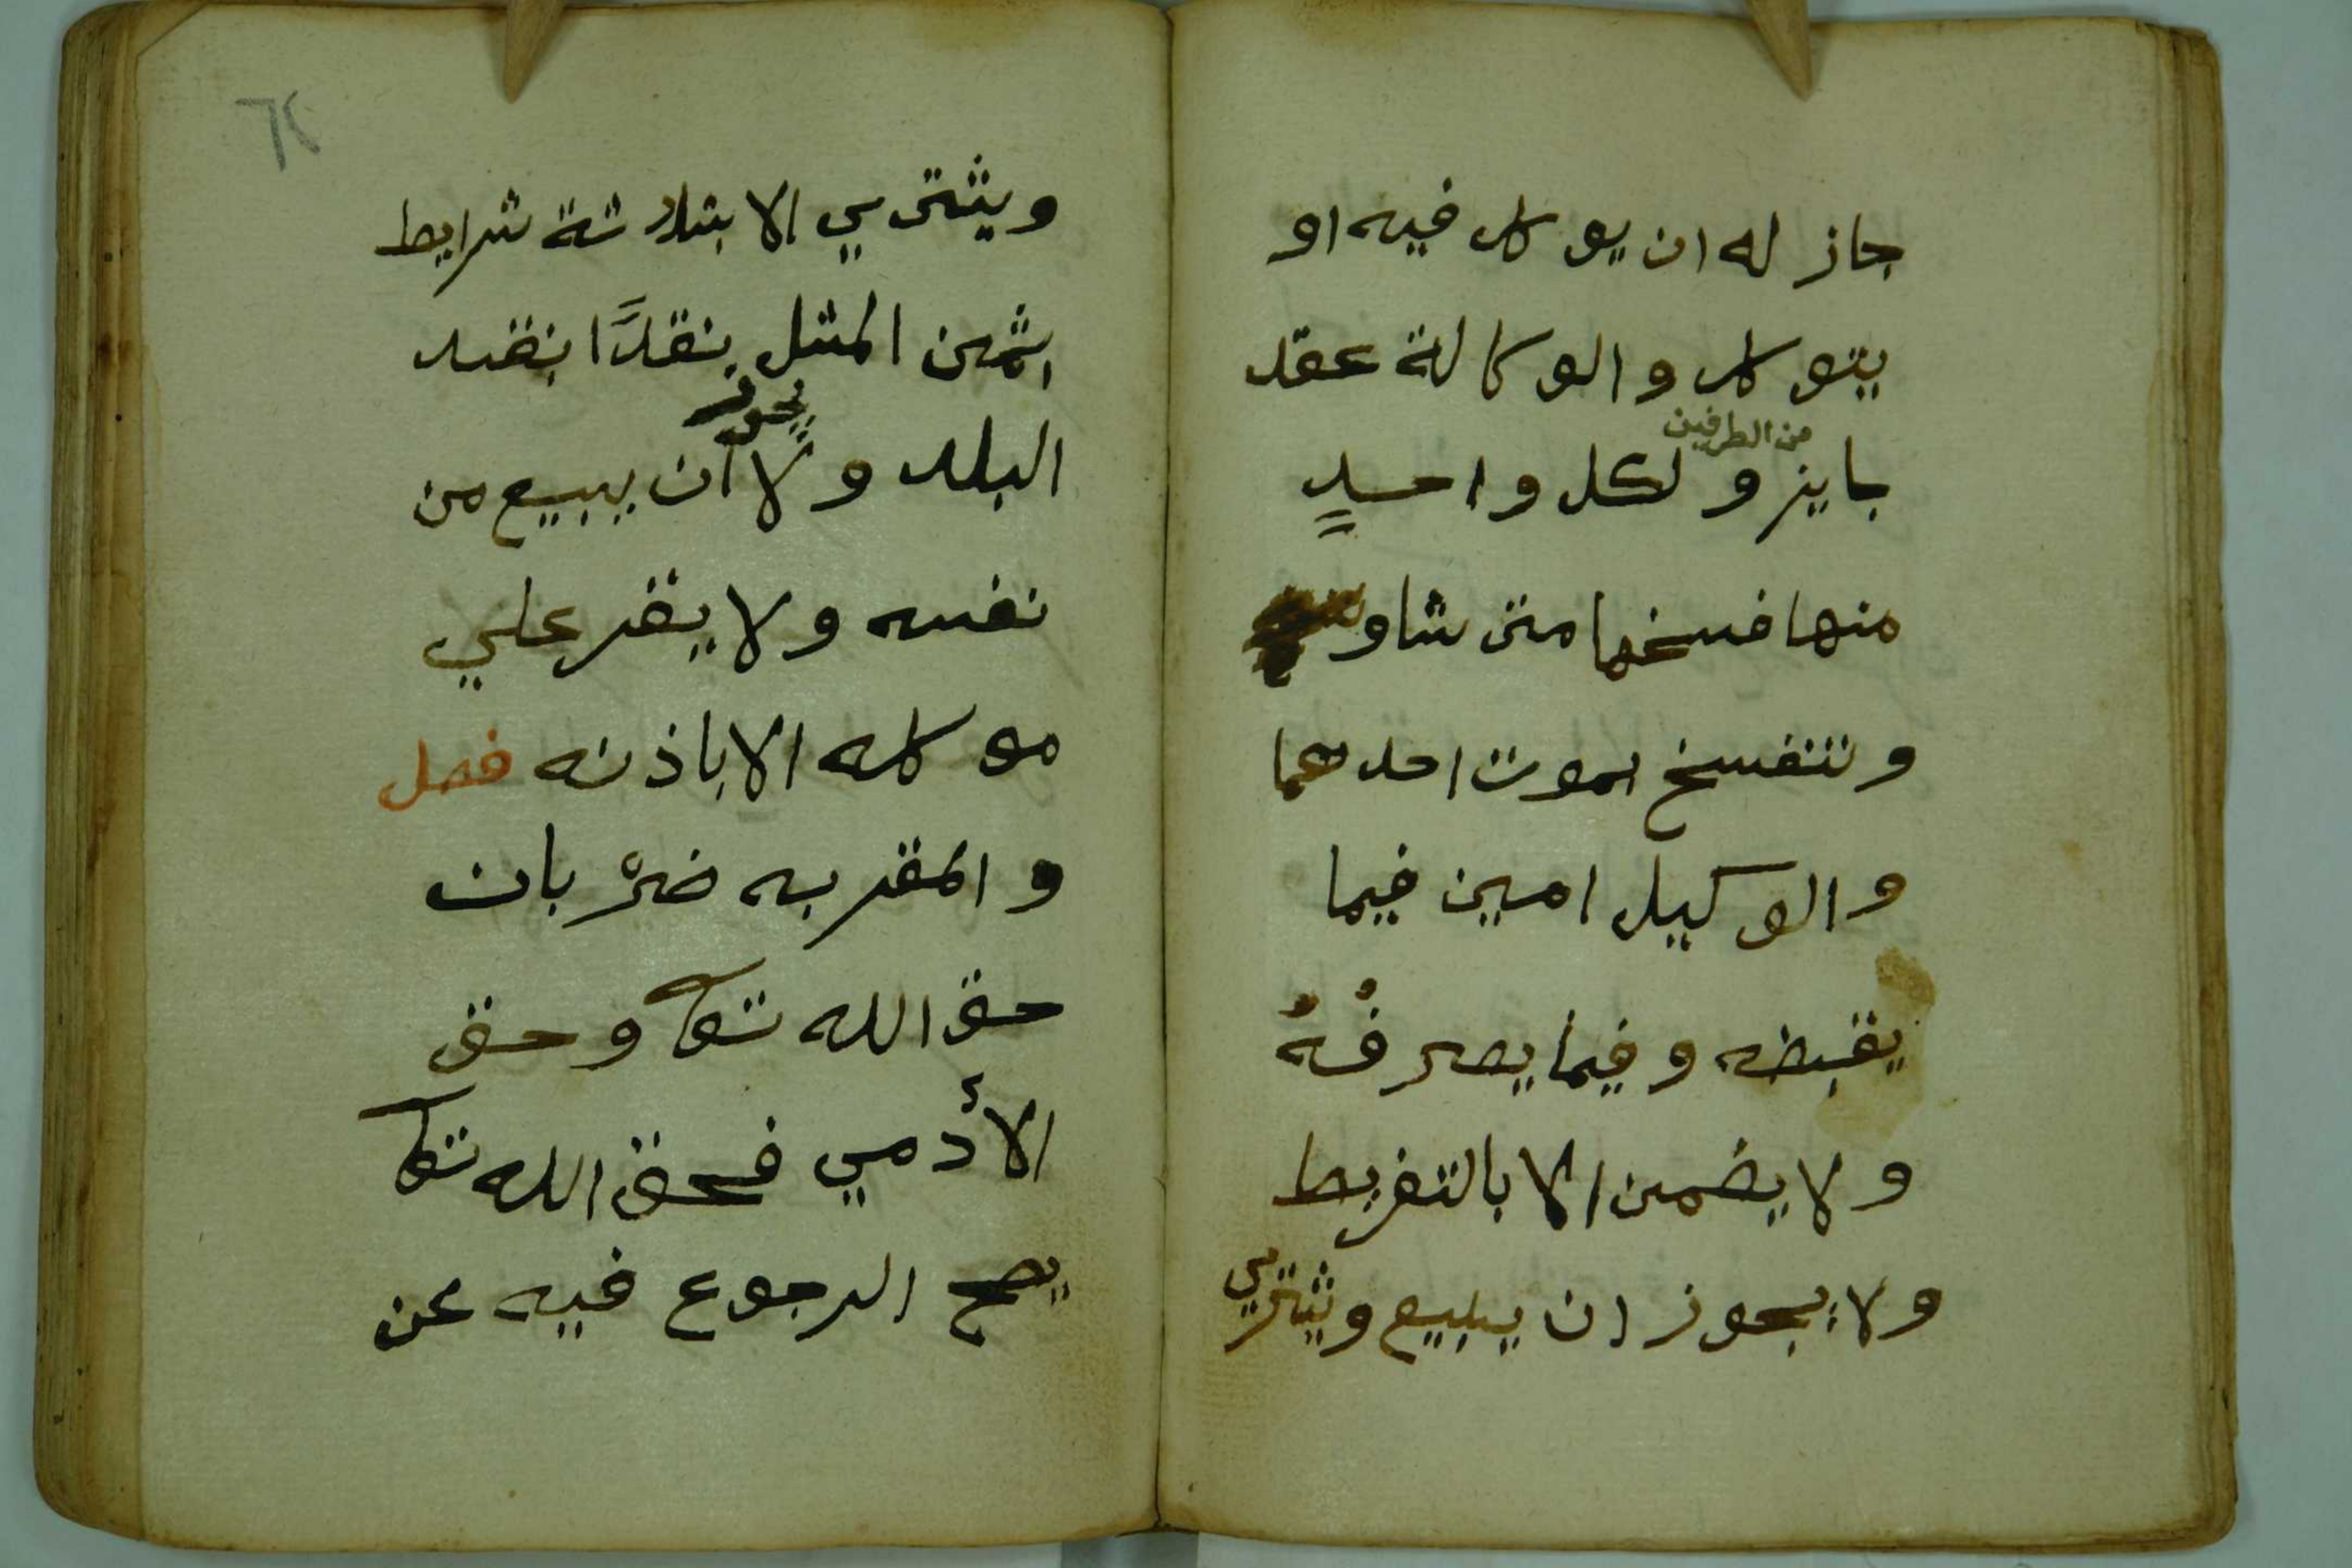 جاز له ان يوكل فيه او
يتوكل والوكالة عقد
من الطرفين
جايز ولكل واحدٍ
منها فسخها متى شاو
وتنفسخ بموت احدهما
والوكيل امين فيما
يقبضه وفيما يصرفُهُ
ولا يضمن الا بالتفريط
ولا يجوز ان يبيع ويشتري
٦٢
ويشترى ي الا بثلاثة شرايط
بثمن المثل نقدًا بنقد
يجوز
البلد ولا ان يبيع من
نفسه ولا يقر علي
موكله الا باذنه فصل
والمقر به ضرْبان
حق الله تعا وحق
الأدمي فحق الله تعا
يصح الرجوع فيه عن